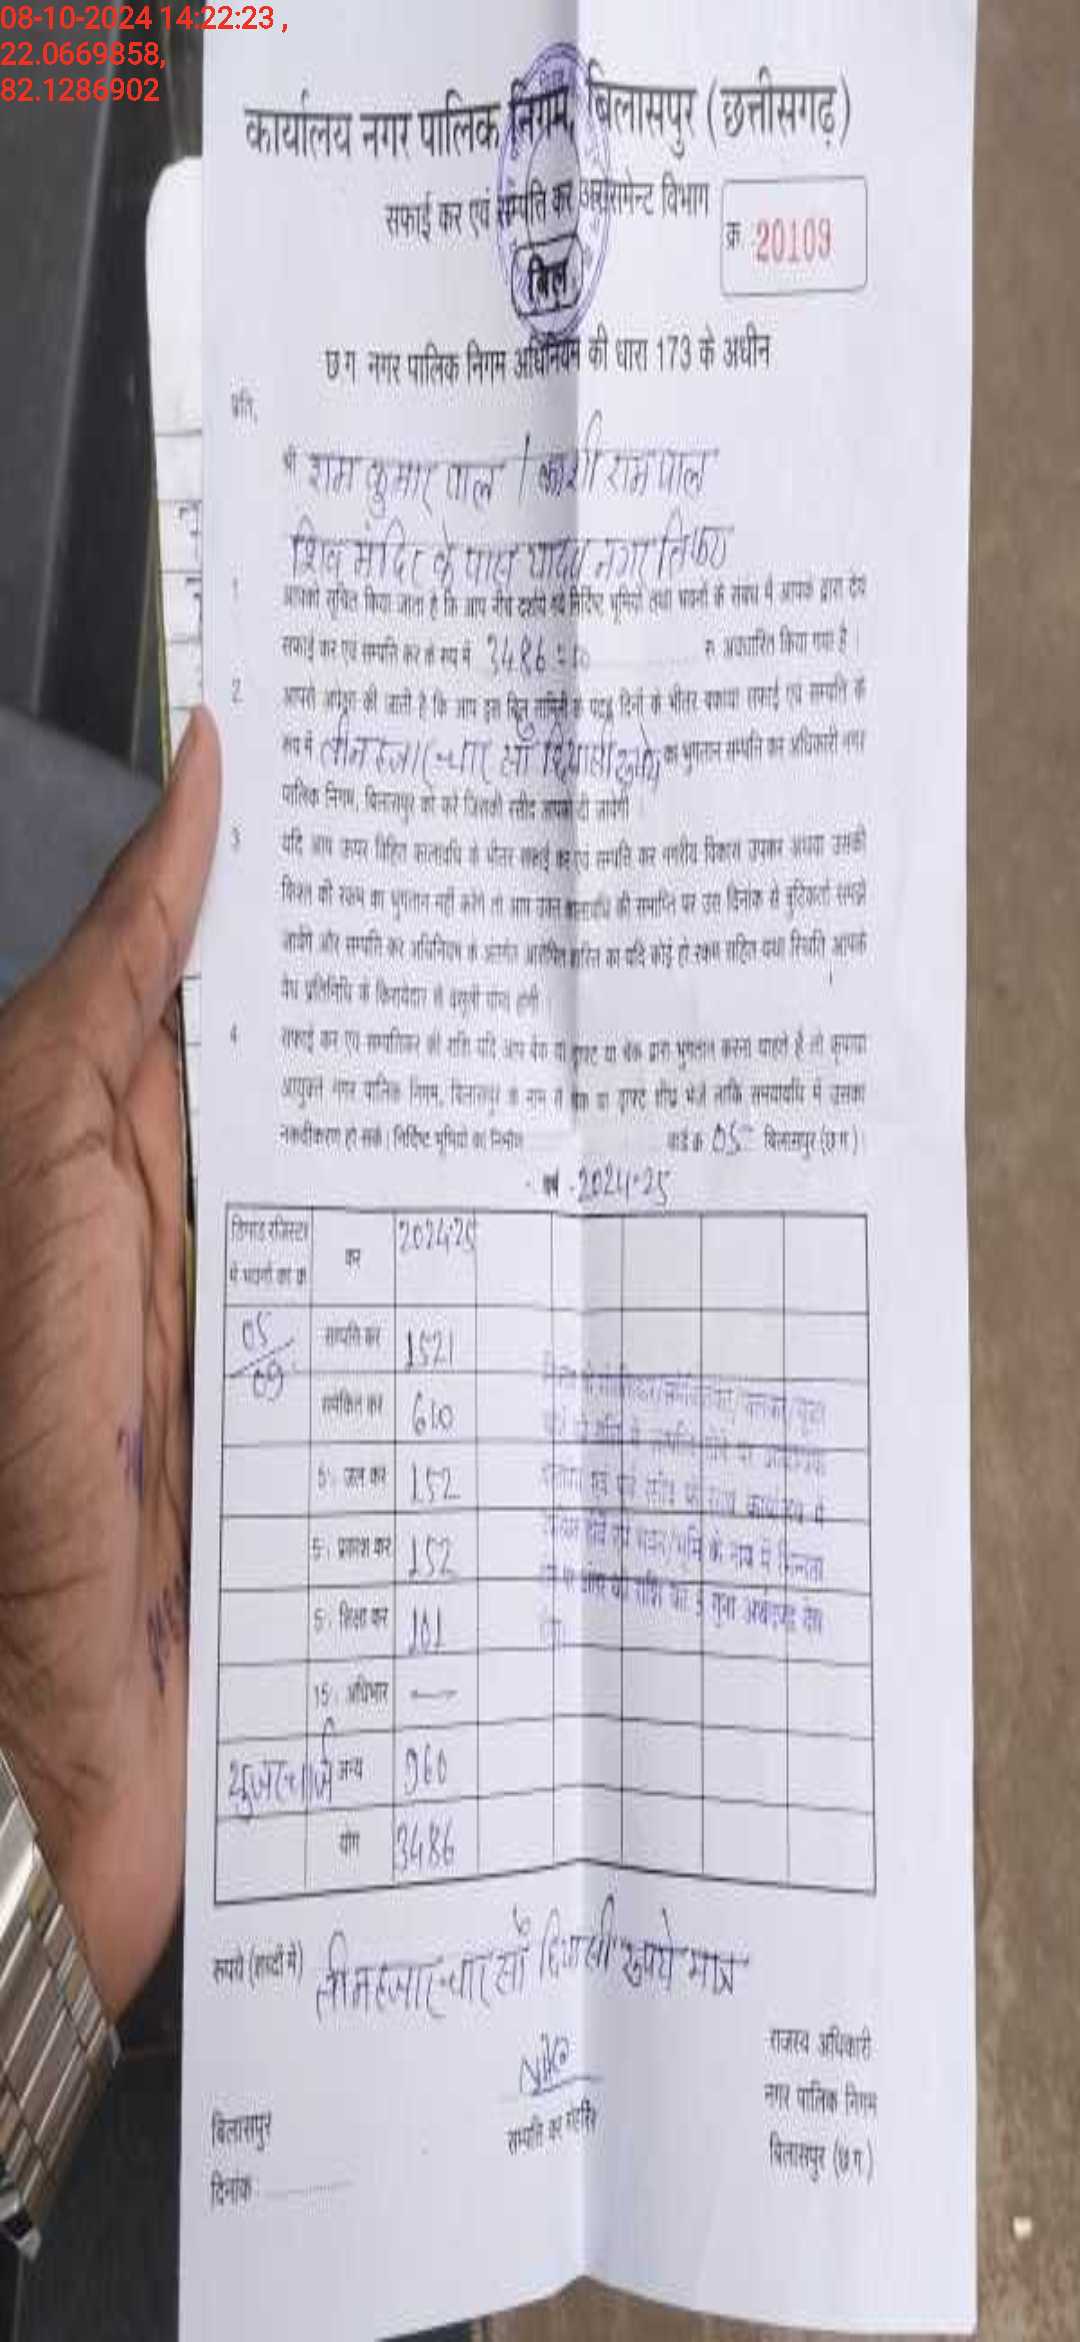 08-10-2024 14:22:23 ,
22.0669858,
82.1286902
कार्यालय नगर पालिक निगम, बिलासपुर (छत्तीसगढ़)
सफाई कर एवं सम्पति कर असेसमेन्ट विभाग
क्र. 20109
बिल
छ ग नगर पालिक निगम अधिनियम की धारा 173 के अधीन
प्रति,
श्री राम कुमार पाल / काशी राम पाल
शिव मंदिर के पास यादव नगर तिफरा
1 आपको सूचित किया जाता है कि आप नीचे दर्शाये गये निर्दिष्ट भूमियों तथा भवनों के संबंध में आपके द्वारा देय
सफाई कर एवं सम्पति कर के रूप में 3486=00 रु अवधारित किया गया है ।
2 आपसे अपेक्षा की जाती है कि आप इस बिल तामिली के पंद्रह दिनों के भीतर बकाया सफाई एवं सम्पति के
रूप में तीन हजार चार सौ छियासी रूपये का भुगतान सम्पति कर अधिकारी नगर
पालिक निगम, बिलासपुर को करें जिसकी रसीद आपको दी जावेगी
3 यदि आप ऊपर विहित कालावधि के भीतर सफाई कर एवं सम्पति कर नगरीय विकास उपकर अथवा उसकी
किश्त की रकम का भुगतान नहीं करेंगे तो आप उक्त कालावधि की समाप्ति पर उस दिनांक से त्रुटिकर्ता समझे
जावेंगे और सम्पति कर अधिनियम के अंतर्गत आरोपित शास्ति का यदि कोई हो रकम सहित यथा स्थिति आपके
वैध प्रतिनिधि के किरायेदार से वसूली योग्य होगी
4 सफाई कर एवं सम्पत्तिकर की राशि यदि आप बैंक या ड्राफ्ट या चेक द्वारा भुगतान करना चाहते है तो कृपया
आयुक्त नगर पालिक निगम, बिलासपुर के नाम से चेक या ड्राफ्ट शीघ्र भेजें ताकि समयावधि में उसका
नकदीकरण हो सके। निर्दिष्ट भूमियों का निर्माण वार्ड क्र 05 बिलासपुर (छ ग )
वर्ष - 2024-25
डिमांड रजिस्टर में भवनों का क्र कर 2024-25
05/09 सम्पति कर 1521
समेकित कर 610
5% जल कर 152
5% प्रकाश कर 152
5% शिक्षा कर 101
15% अधिभार —
यूजर चार्ज अन्य 960
योग 3486
की राशि का 5 गुना अर्थदण्ड देय
रूपये (शब्दों में) तीन हजार चार सौ छियासी रूपये मात्र
राजस्व अधिकारी
नगर पालिक निगम
बिलासपुर (छ ग )
सम्पति कर
बिलासपुर
दिनांक